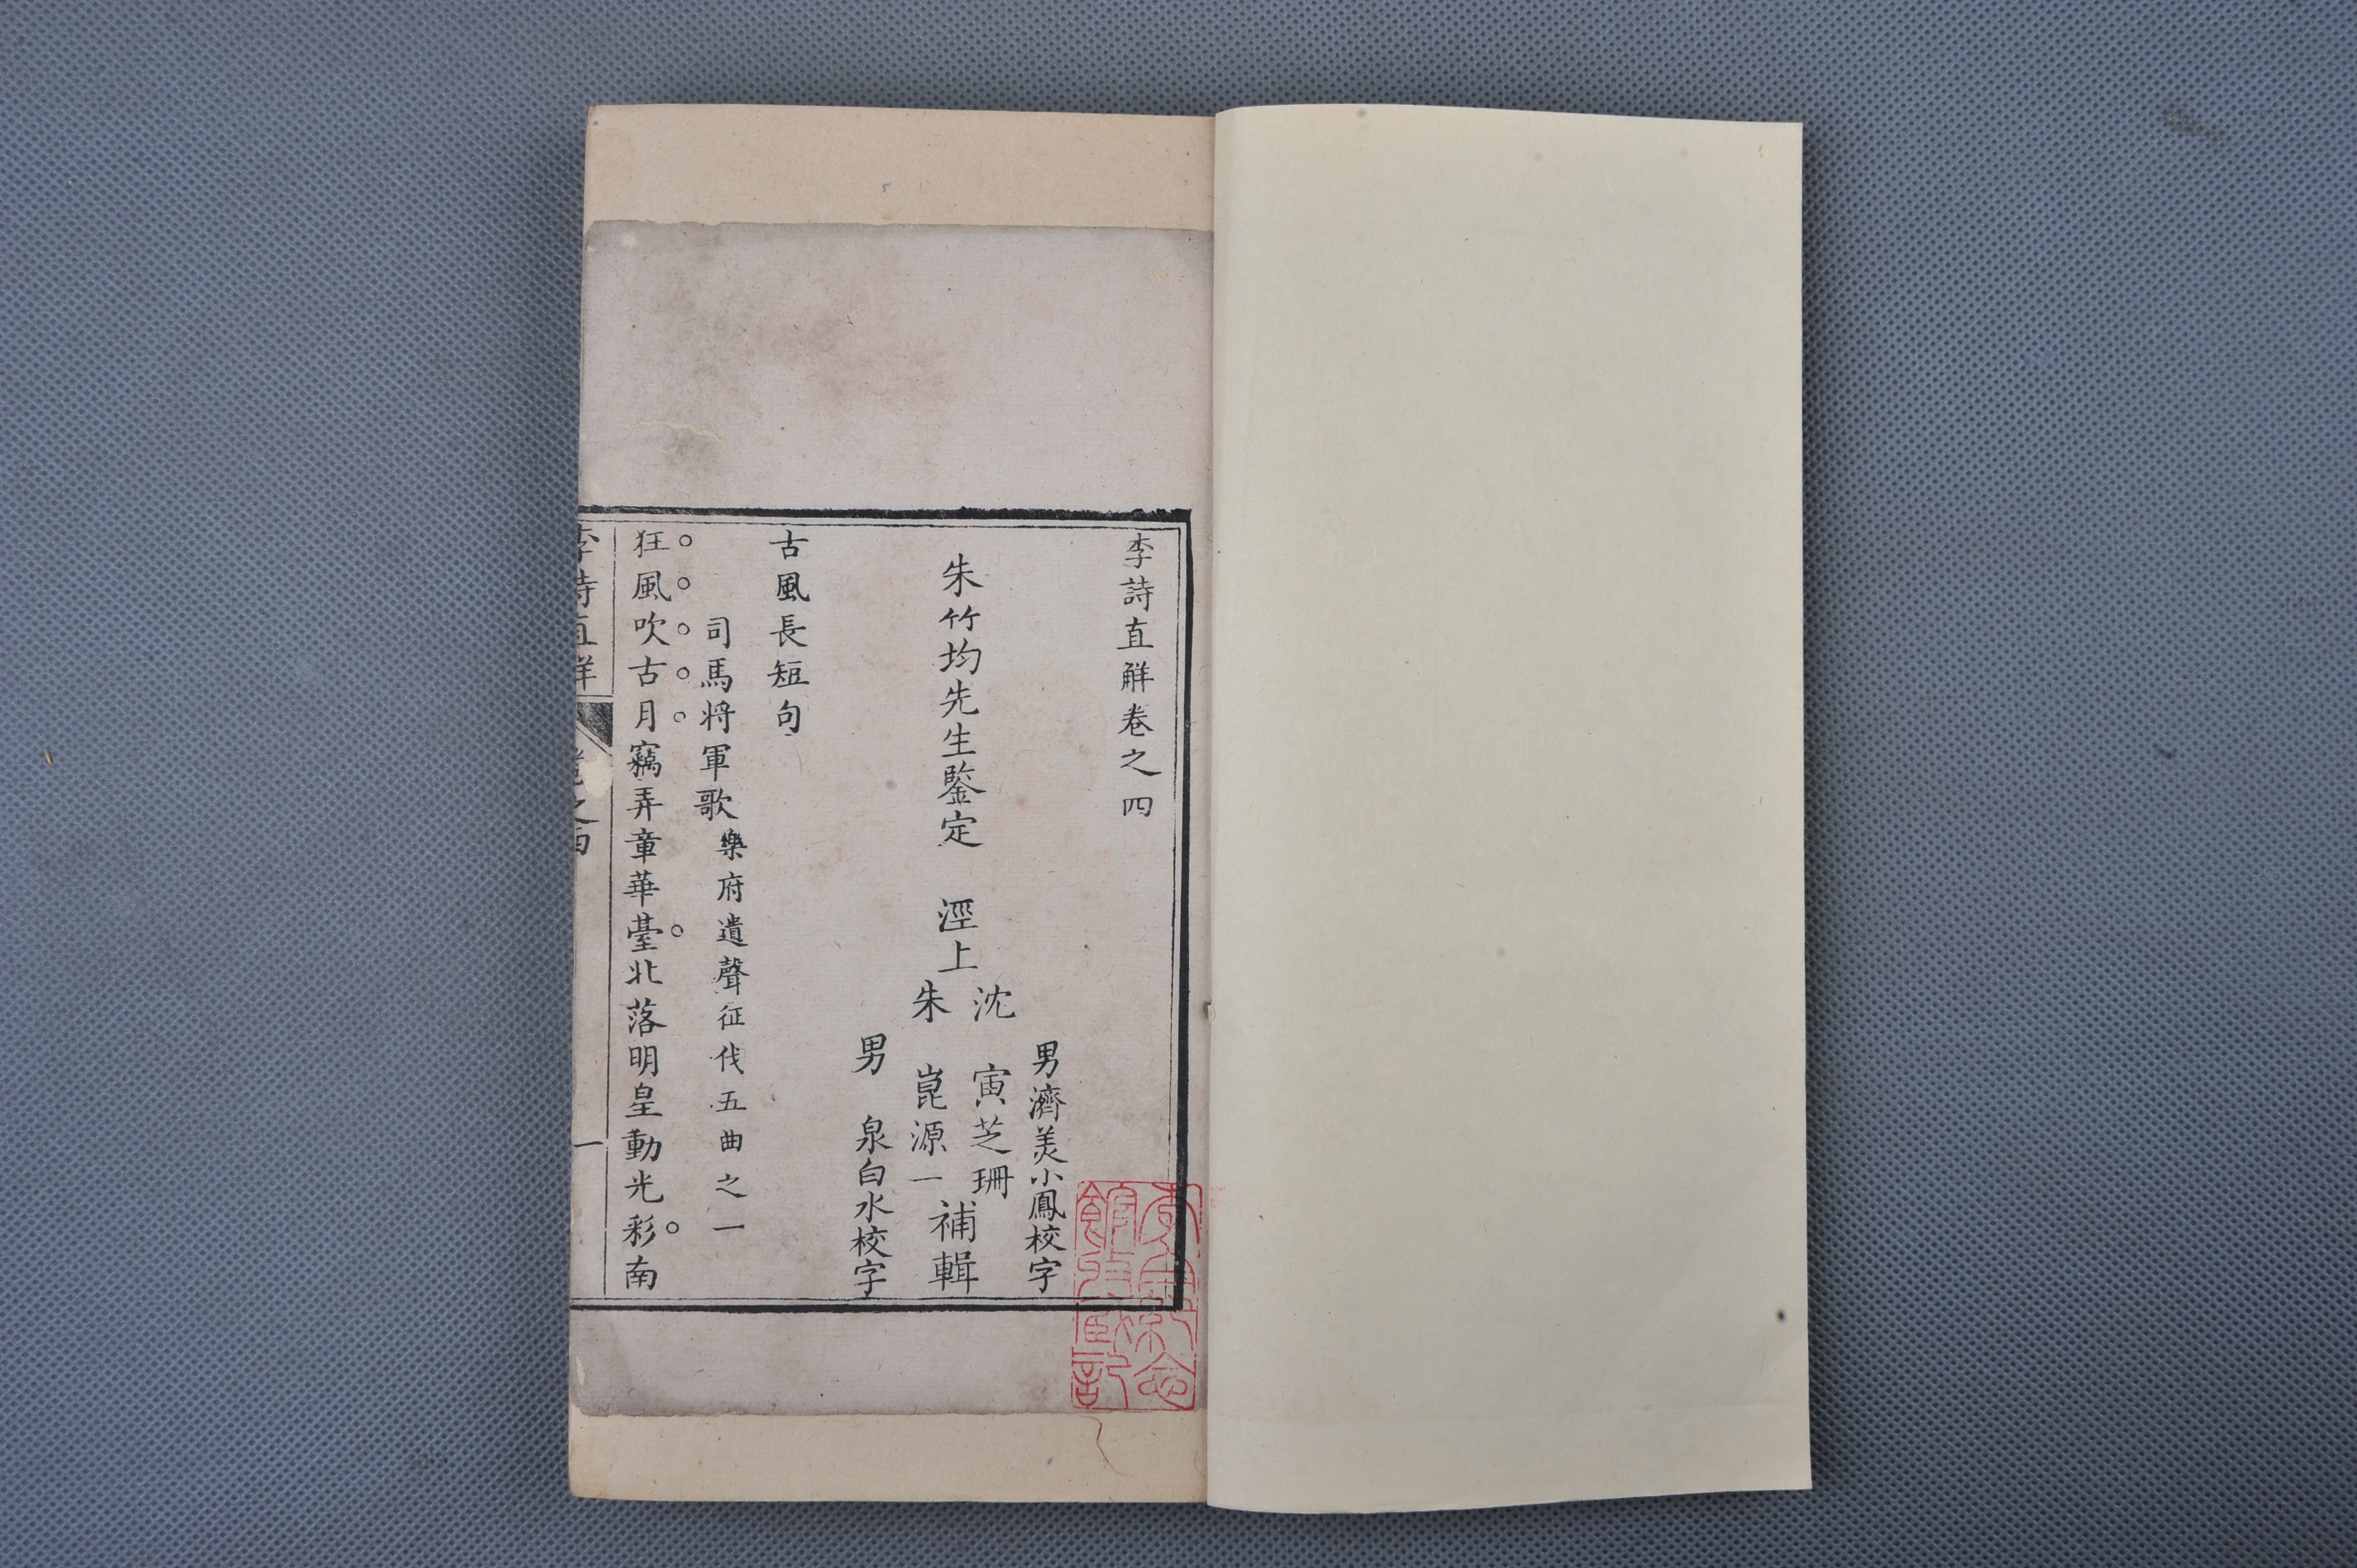 李詩直觧卷之四
男濟美小鳳校字
朱竹均先生鑒定 涇上
沈 寅芝珊
朱 崑源一
補輯
男 泉白水校字
古風長短句
司馬將軍歌 樂府遺聲征伐五曲之一
狂風吹古月竊弄章華臺北落明皇動光彩南
李詩直觧 卷之四 一
李白紀念館收藏記